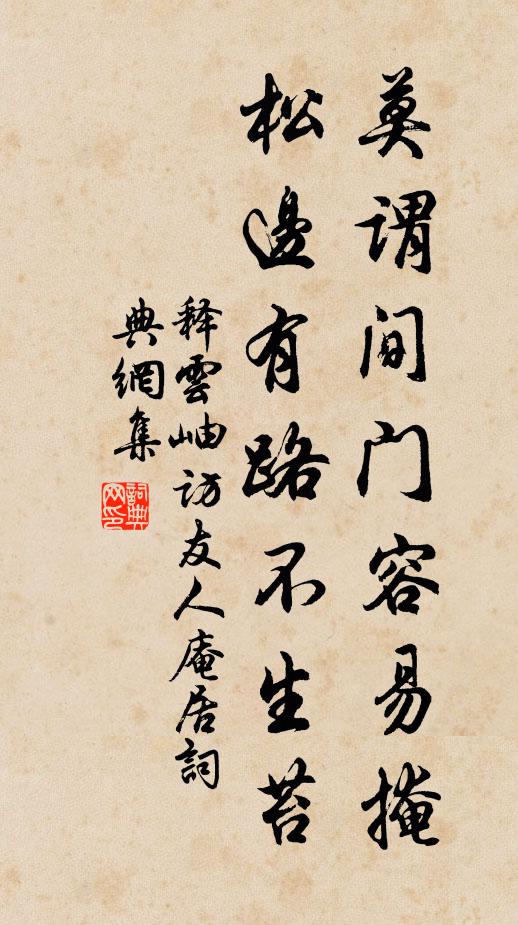 莫谓间门容易掩
松邊有路不生苔
释雲岫访友人庵居詞
典網集
詞典网印